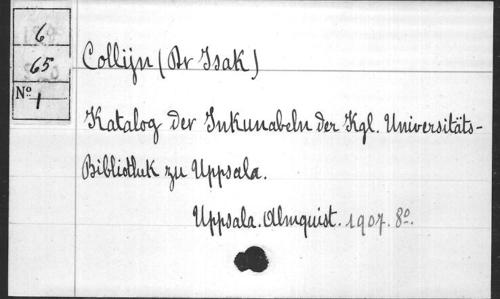 6
65
Nº 1
Collijn (Dr Isak)
Katalog der Inkunabeln der Kgl. Universitäts-
Bibliothek zu Uppsala.
Uppsala. Almquist. 1907. 8º.